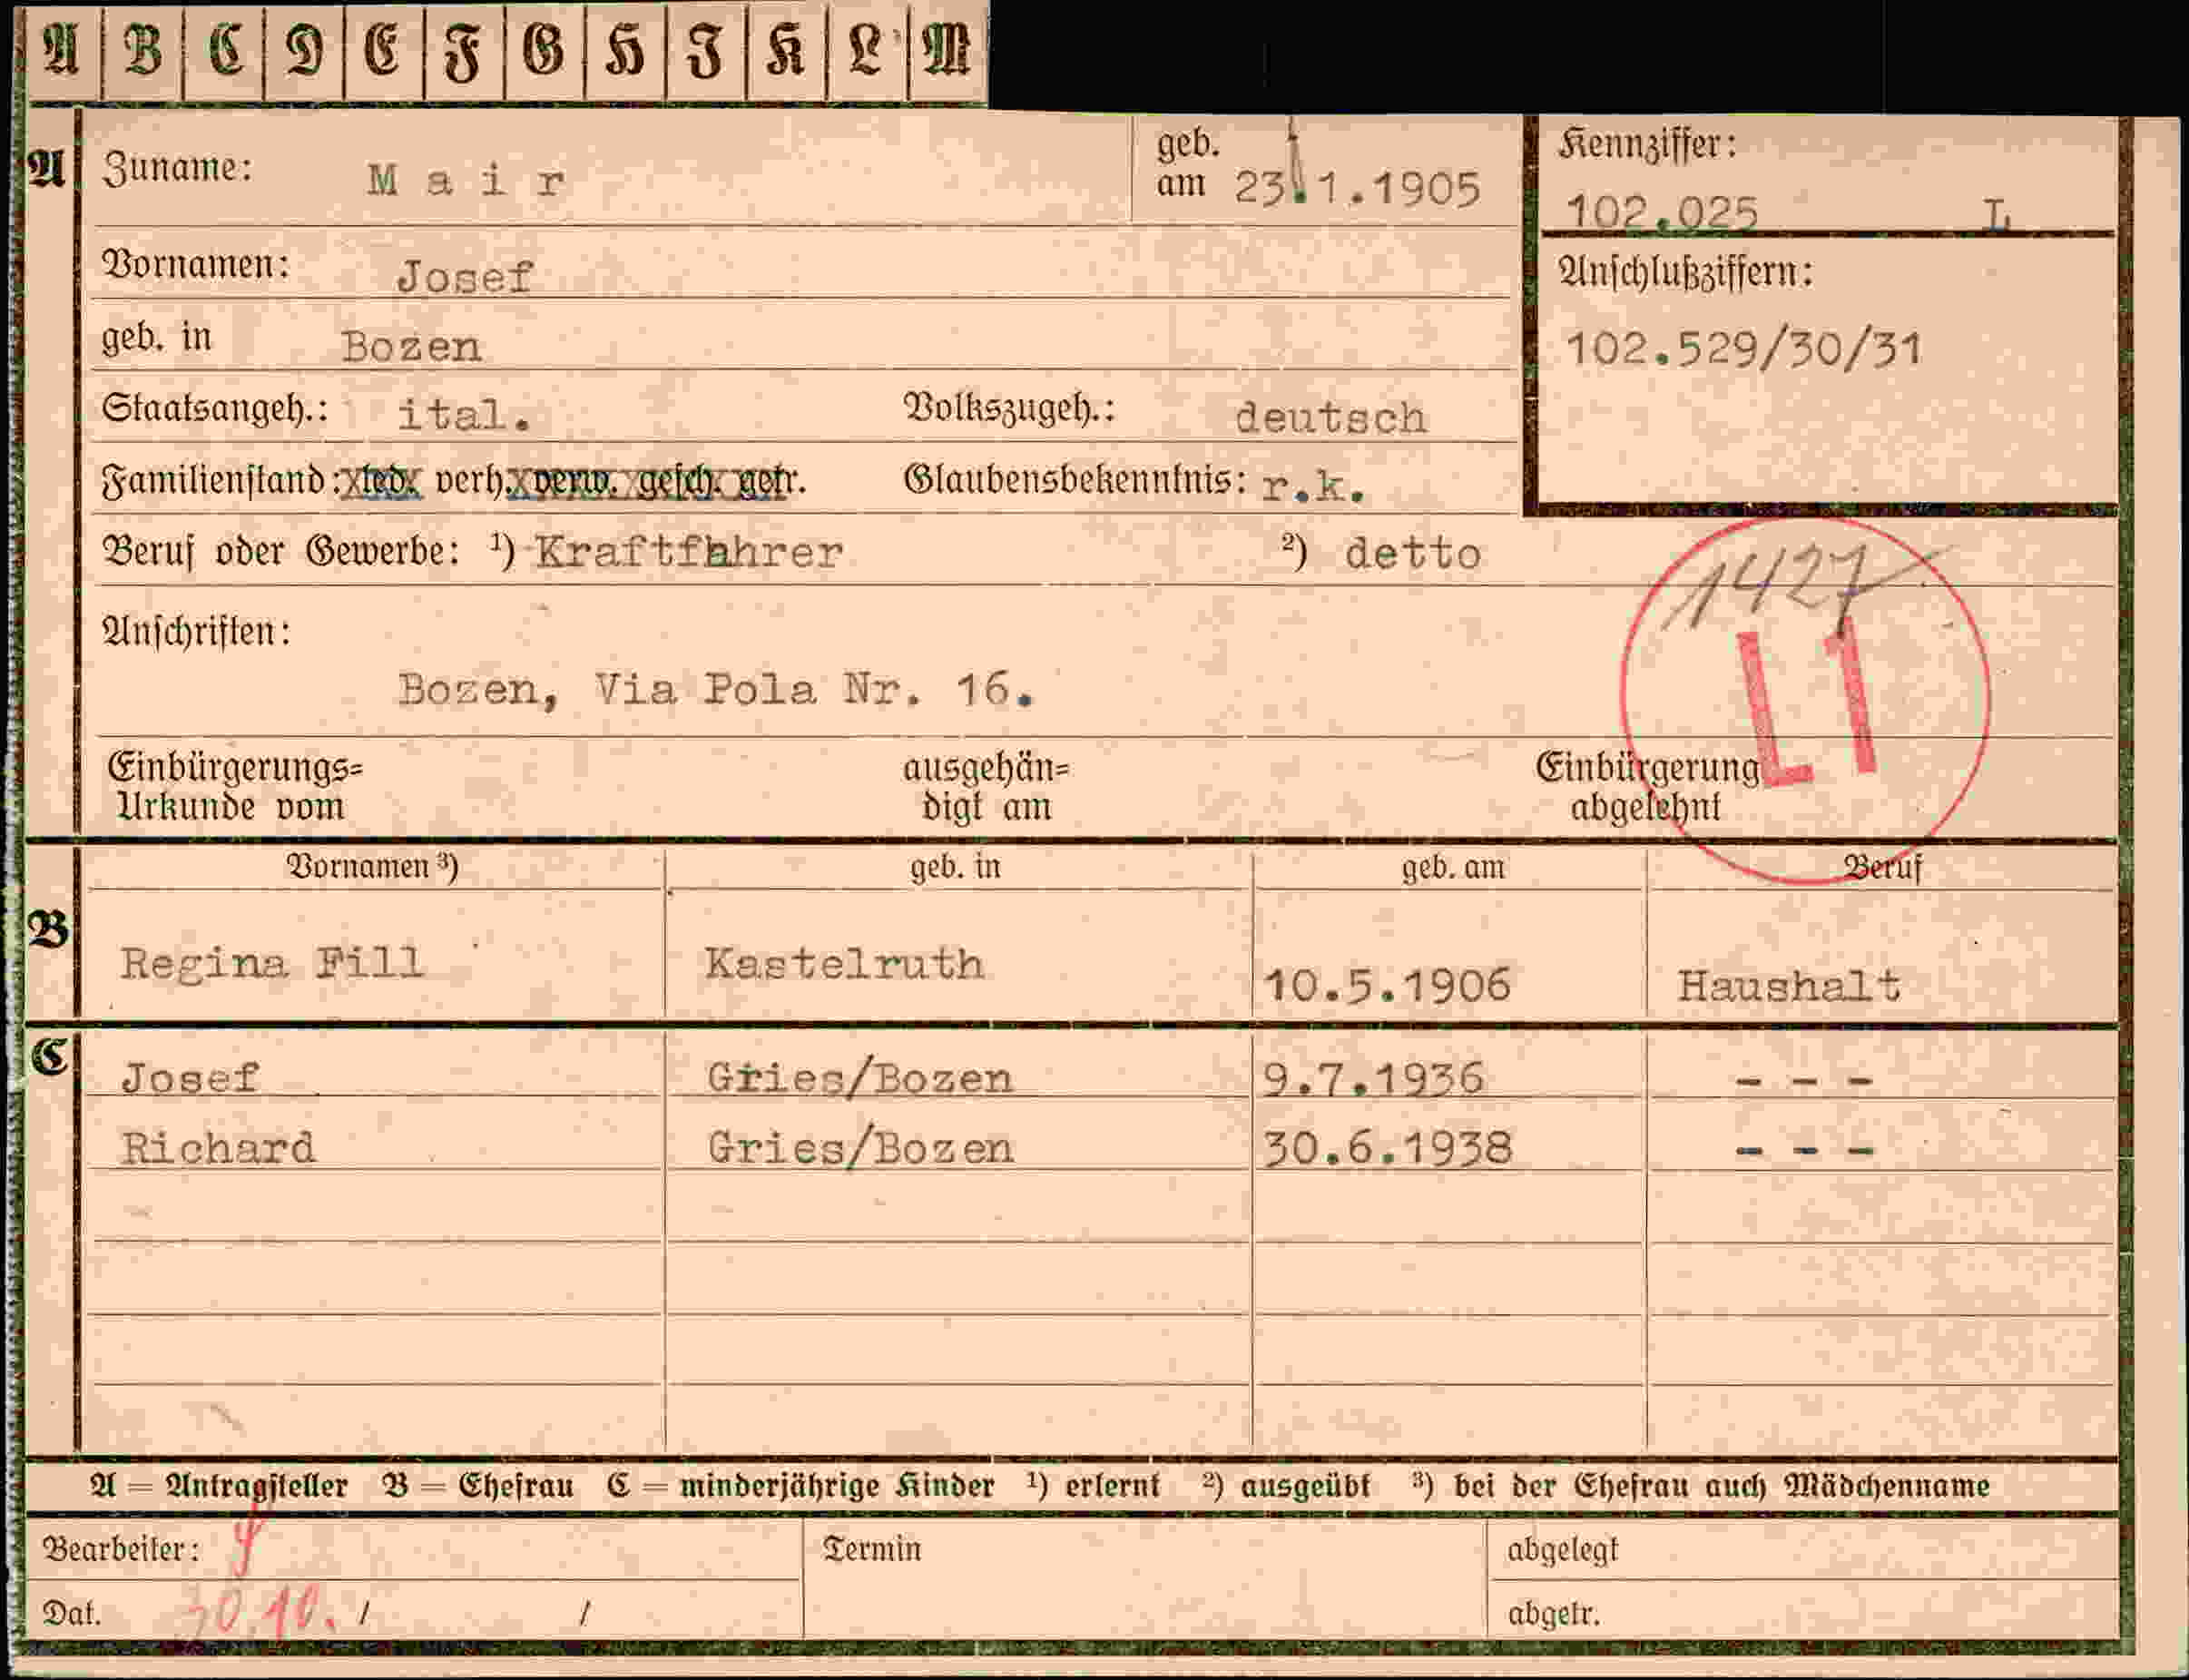 A B C D E F G H I K L M
A Zuname: Mair geb. am 23.1.1905 Kennziffer: 102.025 L
Vornamen: Josef Anschlußziffern:
geb. in Bozen 102.529/30/31
Staatsangeh.: ital. Volkszugeh.: deutsch
Familienstand: led. verh. verw. gesch. getr. Glaubensbekenntnis: r.k.
Beruf oder Gewerbe: ¹) Kraftfahrer ²) detto
1427
Anschriften:
Bozen, Via Pola Nr. 16.
L1
Einbürgerungs= ausgehän= Einbürgerung
Urkunde vom digt am abgelehnt
Vornamen ³) geb. in geb. am Beruf
B Regina Fill Kastelruth 10.5.1906 Haushalt
C Josef Gries/Bozen 9.7.1936 - - -
Richard Gries/Bozen 30.6.1938 - - -
A = Antragsteller B = Ehefrau C = minderjährige Kinder ¹) erlernt ²) ausgeübt ³) bei der Ehefrau auch Mädchenname
Bearbeiter: Termin abgelegt
Dat. 30.10. / / abgetr.